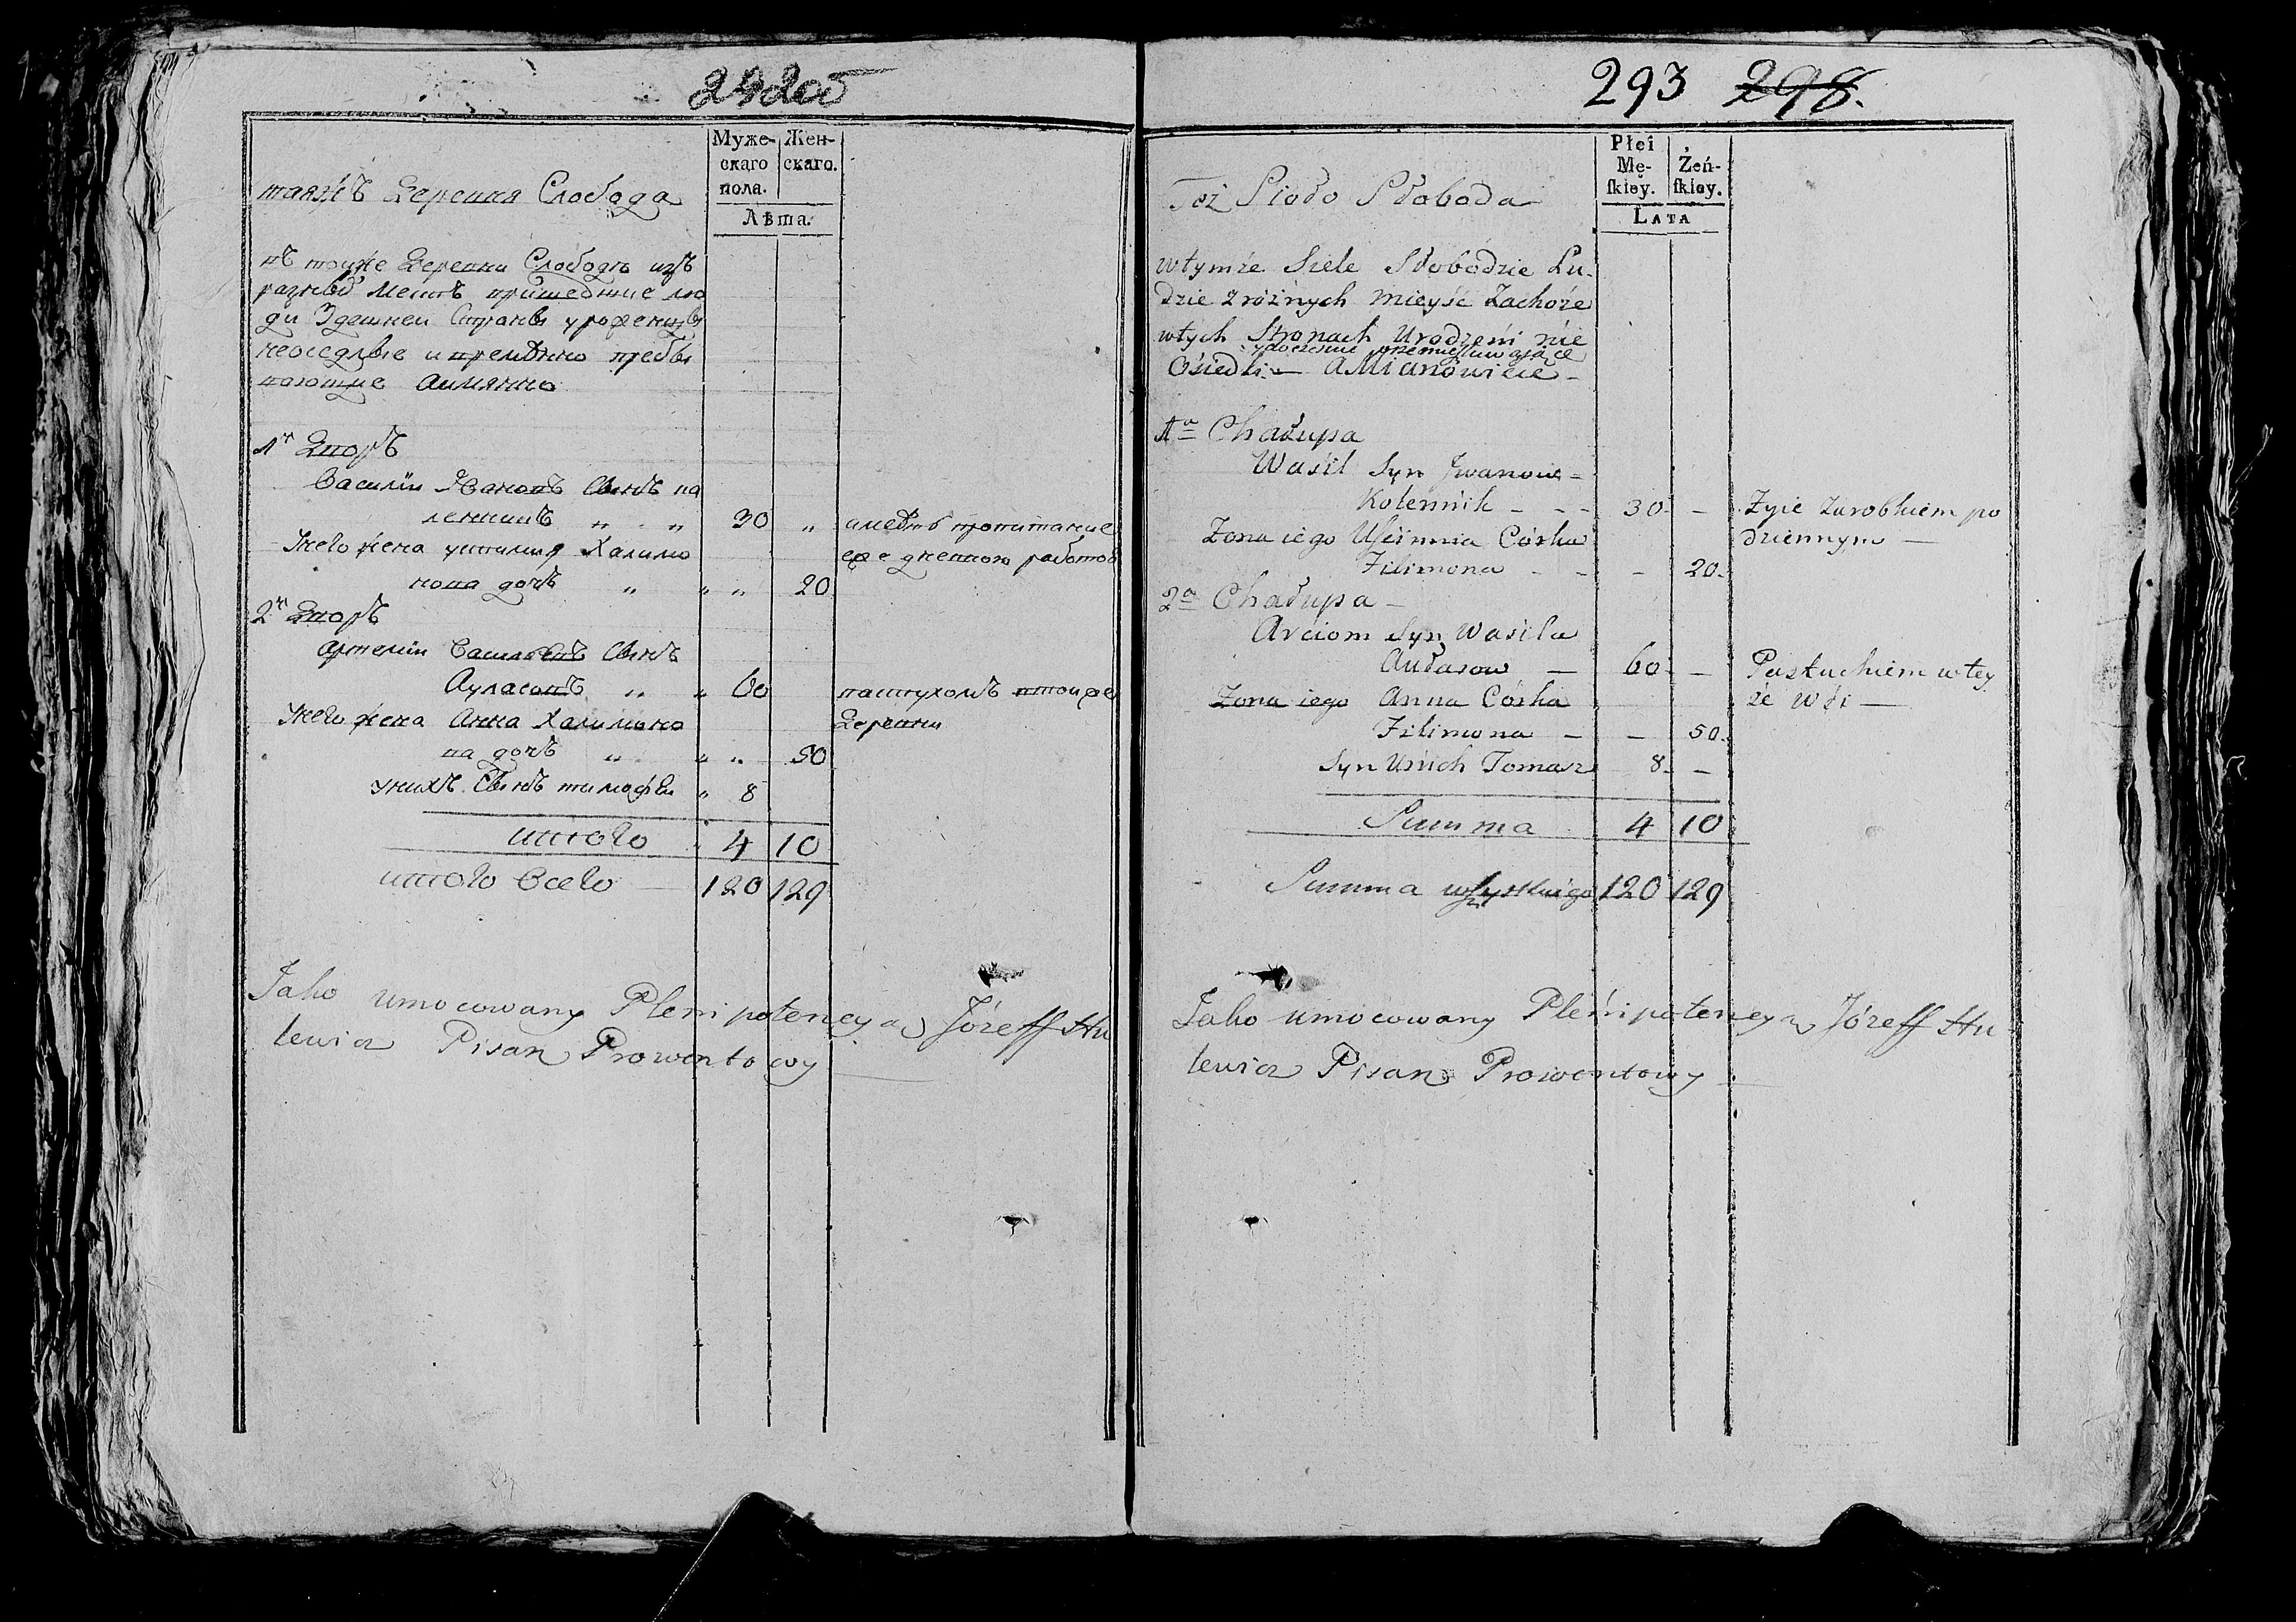 292об
Муже- Жен-
скаго скаго.
пола.
Лѣта.
таяжъ Деревня Слобода
въ тойже Деревни Слободѣ изъ
разныхъ местъ пришедшие лю
ди Здешнеи Страны уроженцы
неоседлые и временно пребы
вающие аимянно
1й Дворъ
Василiи Ивановъ Сынъ ка
ленникъ „ „ 30 „ имеетъ пропитание
Унего жена устимия Халимо
еже дневною работою
нова дочь „ „ „ 20
2й Дворъ
Артемiи Васильевъ Сынъ
Ауласовъ „ „ 60 пастухомъ втои же
Унего жена Анна Халимоно Деревни
ва дочь „ „ „ 50
унихъ Сынъ тимофѣи „ 8
итого 4 10
итого Всего 120 129
Jako umocowany Plenipotencyą Józeff Hu
lewicz Pisarz Prowentowy
293 298.
Płci
Mę- Żeń-
skiey. skiey.
LATA
Toż Sioło Słoboda
w tymże Siele Słobodzie Lu-
dzie z różnych mieyść Zachoże
w tych Stronach Urodzeni nie
Ośiedli — a Mianowicie —
1a Chałupa
Waśil Syn Jwanow —
Kolennik - - - 30 - Żyie zarobkiem po
Zona iego Uścimnia Córka dziennym —
Filimona - - - 20.
2a Chałupa —
Arciom Syn Wasila
Aułasow — 60 - Pastuchiem w tey
Zona iego Anna Córka że wśi —
Filimona — — 50.
Syn Unich Tomasz 8. —
Summa 4 10
Summa wszystkiego 120 129
Jako umocowany Plenipotencyą Józeff Hu
lewicz Pisarz Prowentowy